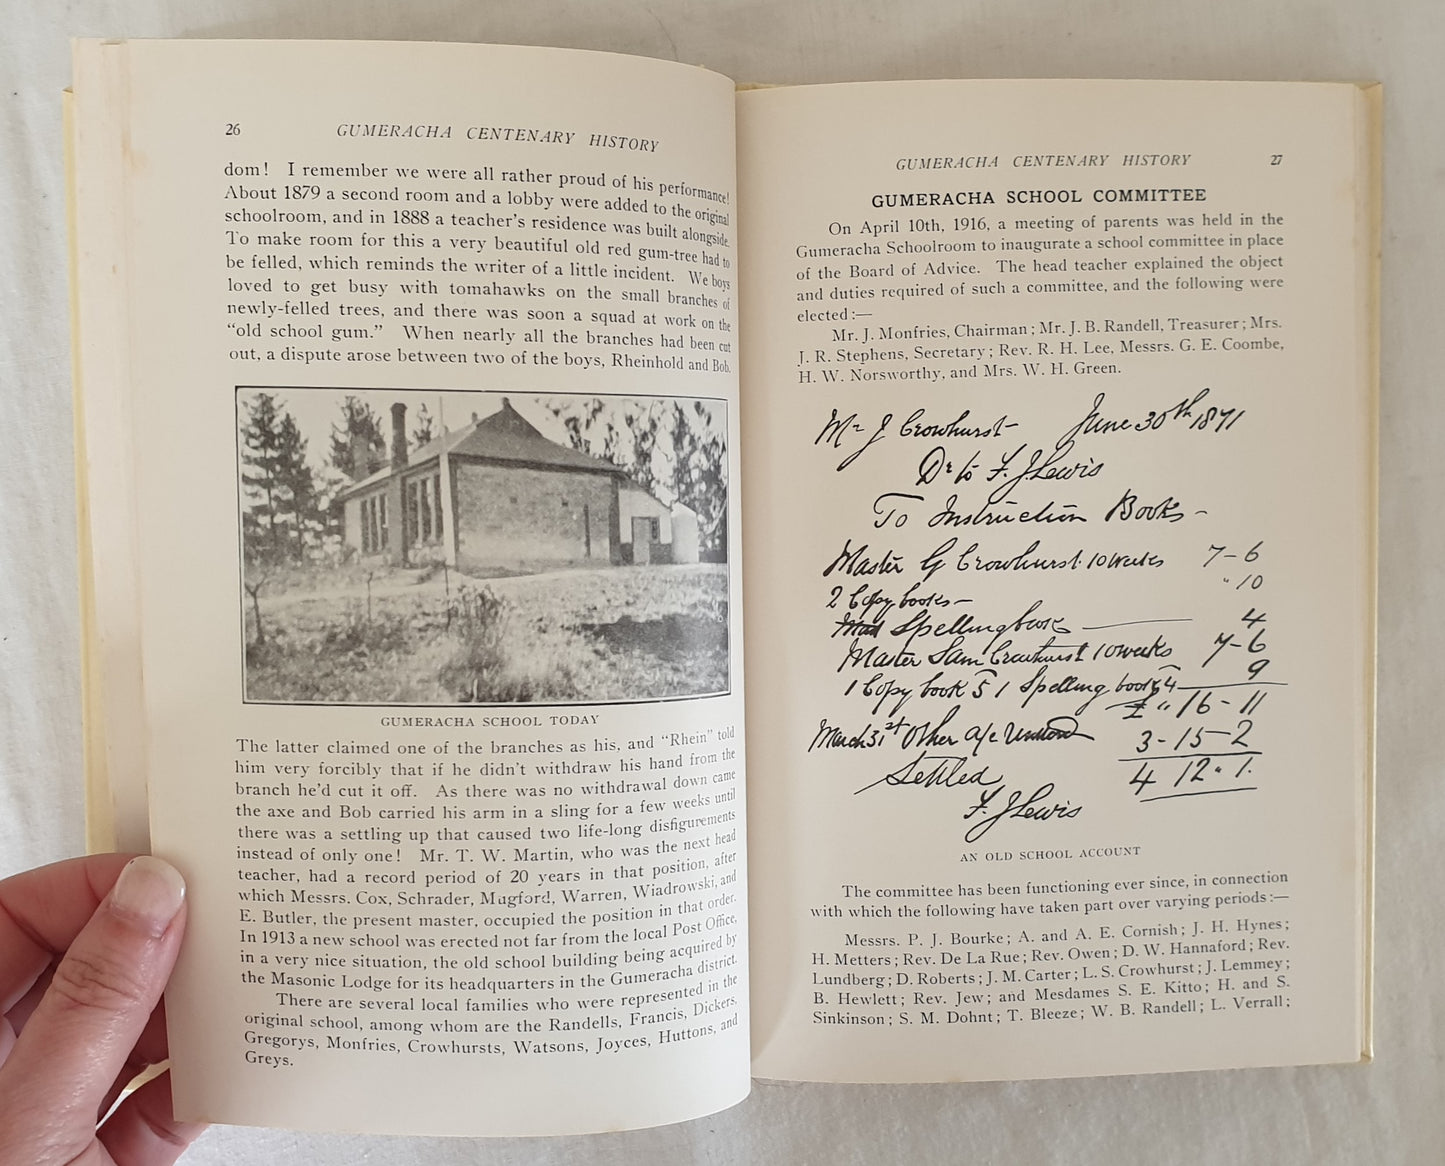 26 GUMERACHA CENTENARY HISTORY
dom! I remember we were all rather proud of his performance!
About 1879 a second room and a lobby were added to the original
schoolroom, and in 1888 a teacher's residence was built alongside.
To make room for this a very beautiful old red gum-tree had to
be felled, which reminds the writer of a little incident. We boys
loved to get busy with tomahawks on the small branches of
newly-felled trees, and there was soon a squad at work on the
"old school gum." When nearly all the branches had been cut
out, a dispute arose between two of the boys, Rheinhold and Bob.
GUMERACHA SCHOOL TODAY
The latter claimed one of the branches as his, and "Rhein" told
him very forcibly that if he didn't withdraw his hand from the
branch he'd cut it off. As there was no withdrawal down came
the axe and Bob carried his arm in a sling for a few weeks until
there was a settling up that caused two life-long disfigurements
instead of only one! Mr. T. W. Martin, who was the next head
teacher, had a record period of 20 years in that position, after
which Messrs. Cox, Schrader, Mugford, Warren, Wiadrowski, and
E. Butler, the present master, occupied the position in that order.
In 1913 a new school was erected not far from the local Post Office,
in a very nice situation, the old school building being acquired by
the Masonic Lodge for its headquarters in the Gumeracha district.
There are several local families who were represented in the
original school, among whom are the Randells, Francis, Dickers,
Gregorys, Monfries, Crowhursts, Watsons, Joyces, Huttons, and
Greys.
GUMERACHA CENTENARY HISTORY 27
GUMERACHA SCHOOL COMMITTEE
On April 10th, 1916, a meeting of parents was held in the
Gumeracha Schoolroom to inaugurate a school committee in place
of the Board of Advice. The head teacher explained the object
and duties required of such a committee, and the following were
elected:—
Mr. J. Monfries, Chairman; Mr. J. B. Randell, Treasurer; Mrs.
J. R. Stephens, Secretary; Rev. R. H. Lee, Messrs. G. E. Coombe,
H. W. Norsworthy, and Mrs. W. H. Green.
Mr J Crowhurst— June 30th 1871
Dr to F. J. Lewis
To Instruction Books—
Master G Crowhurst 10 weeks 7-6
2 Copy books— " 10
Spelling book 4
Master Sam Crowhurst 10 weeks 7-6
1 Copy book 5 1 Spelling book 4 9
" 16-11
March 31st Other a/c 3-15-2
Settled 4 12 " 1.
F. J Lewis
AN OLD SCHOOL ACCOUNT
The committee has been functioning ever since, in connection
with which the following have taken part over varying periods:—
Messrs. P. J. Bourke; A. and A. E. Cornish; J. H. Hynes;
H. Metters; Rev. De La Rue; Rev. Owen; D. W. Hannaford; Rev.
Lundberg; D. Roberts; J. M. Carter; L. S. Crowhurst; J. Lemmey;
B. Hewlett; Rev. Jew; and Mesdames S. E. Kitto; H. and S.
Sinkinson; S. M. Dohnt; T. Bleeze; W. B. Randell; L. Verrall;